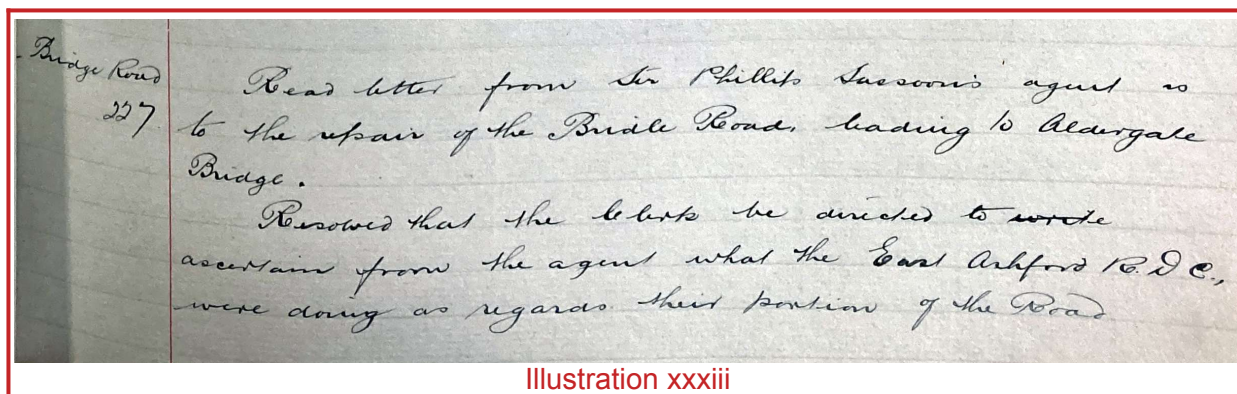 Bridge Road
227
Read letter from Sir Phillip Sassoon's agent as
to the repair of the Bridle Road, leading to Aldergate
Bridge.
Resolved that the Clerk be directed to write
ascertain from the agent what the East Ashford R. D C.,
were doing as regards their portion of the Road
Illustration xxxiii